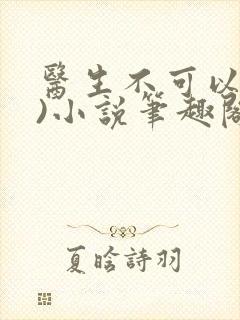 醫生不可以
)小説筆趣閣
夏晗詩羽